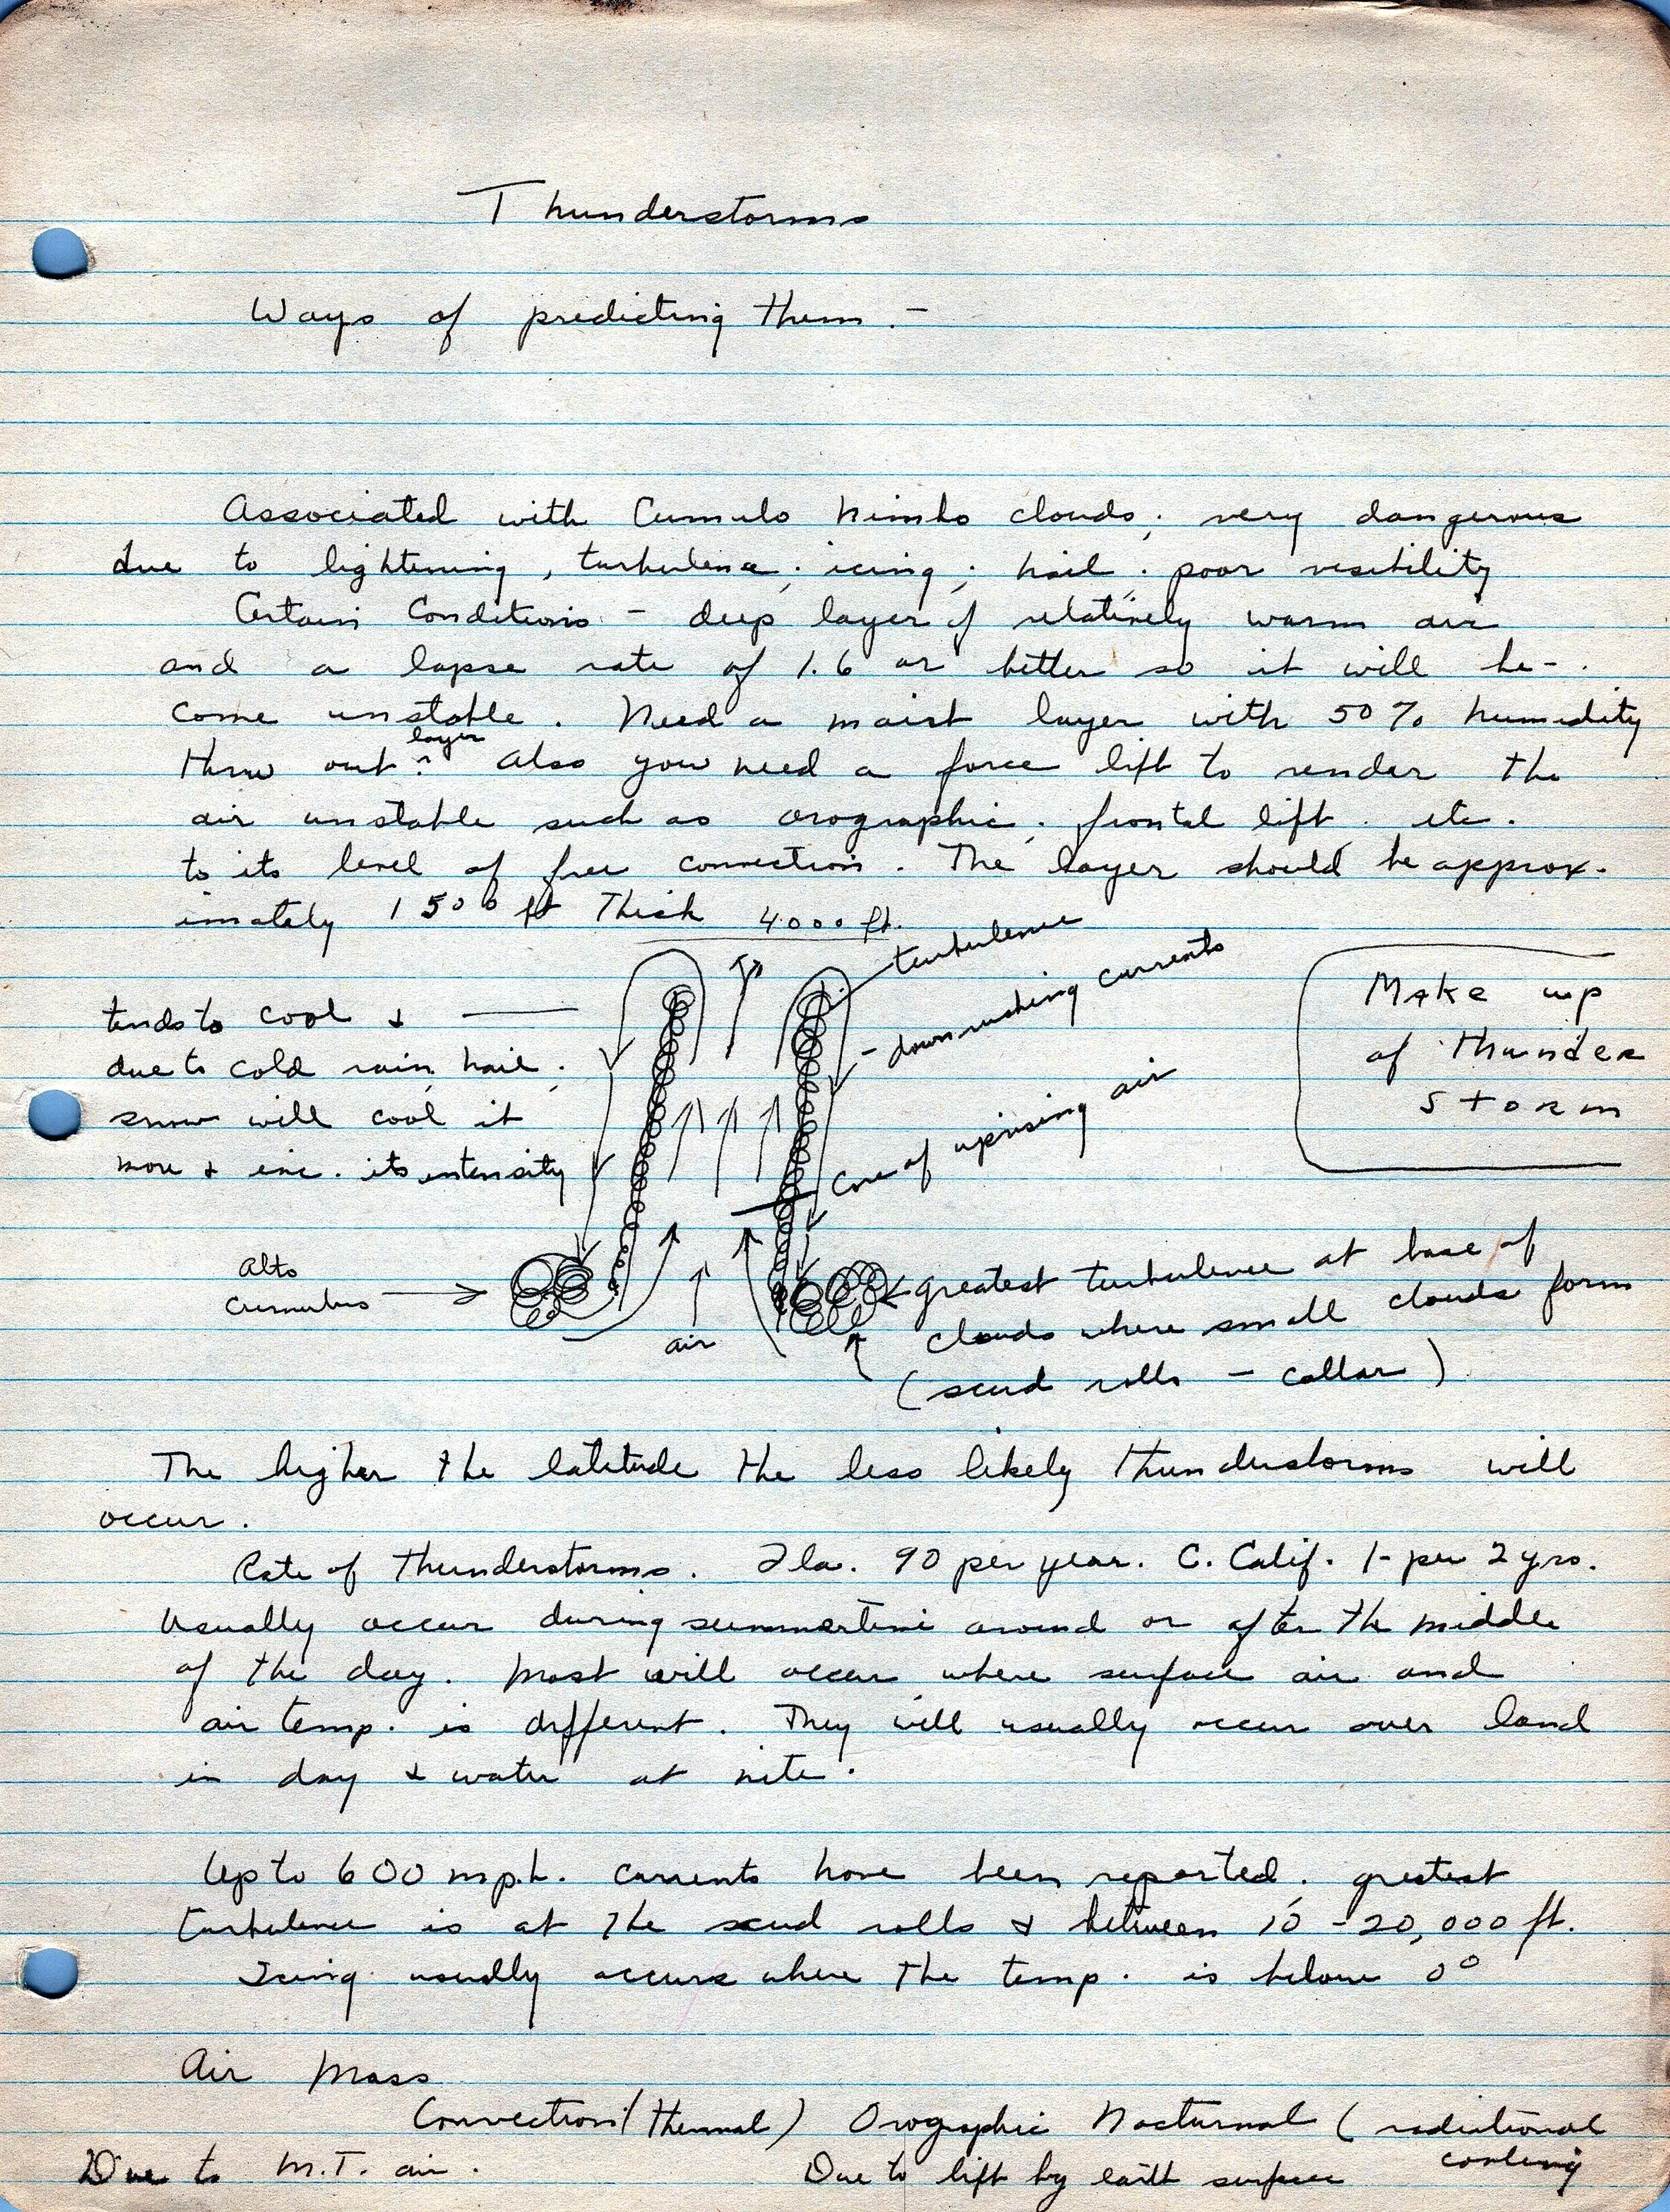 Thunderstorms
Ways of predicting them. -
Associated with Cumulo Nimbo clouds; very dangerous
due to lightening, turbulence; icing; hail; poor visibility
Certain Conditions - deep layer of relatively warm air
and a lapse rate of 1.6 or better so it will be-
come unstable. Need a moist layer with 50% humidity
thru out layer. Also you need a force lift to render the
air unstable such as orographic, frontal lift. etc.
to its level of free convection. The layer should be approx-
imately 1500 ft Thick
4000 ft.
turbulence
downrushing currents
Make up
of Thunder
Storm
tends to cool &
due to cold rain, hail,
snow will cool it
more & inc. its intensity
Core of uprising air
Alto
Cumulus
air
greatest turbulence at base of
clouds where small clouds form
(scud rolls - collar)
The higher the latitude the less likely thunderstorms will
occur.
Rate of thunderstorms. Fla. 90 per year. C. Calif. 1- per 2 yrs.
Usually occur during summertime around or after the middle
of the day. Most will occur where surface air and
air temp. is different. They will usually occur over land
in day & water at nite.
Up to 600 mph. currents have been reported; greatest
turbulence is at the scud rolls & between 10 - 20,000 ft.
Icing usually occurs where the temp. is below 0°
Air Mass
Convection (thermal) Orographic Nocturnal (radiational
cooling
Due to M.T. air. Due to lift by earth surface